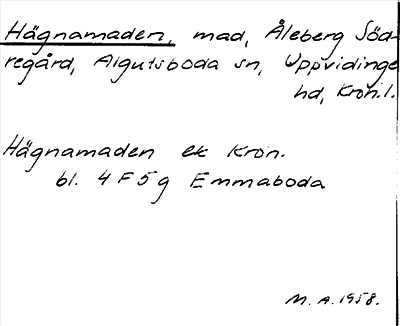 Hägnamaden, mad, Åleberg Söd-
regård, Algutsboda sn, Uppvidinge
hd, Kron.l.
Hägnamaden ek Kron.
bl. 4 F 5 g Emmaboda
M. A. 1958.